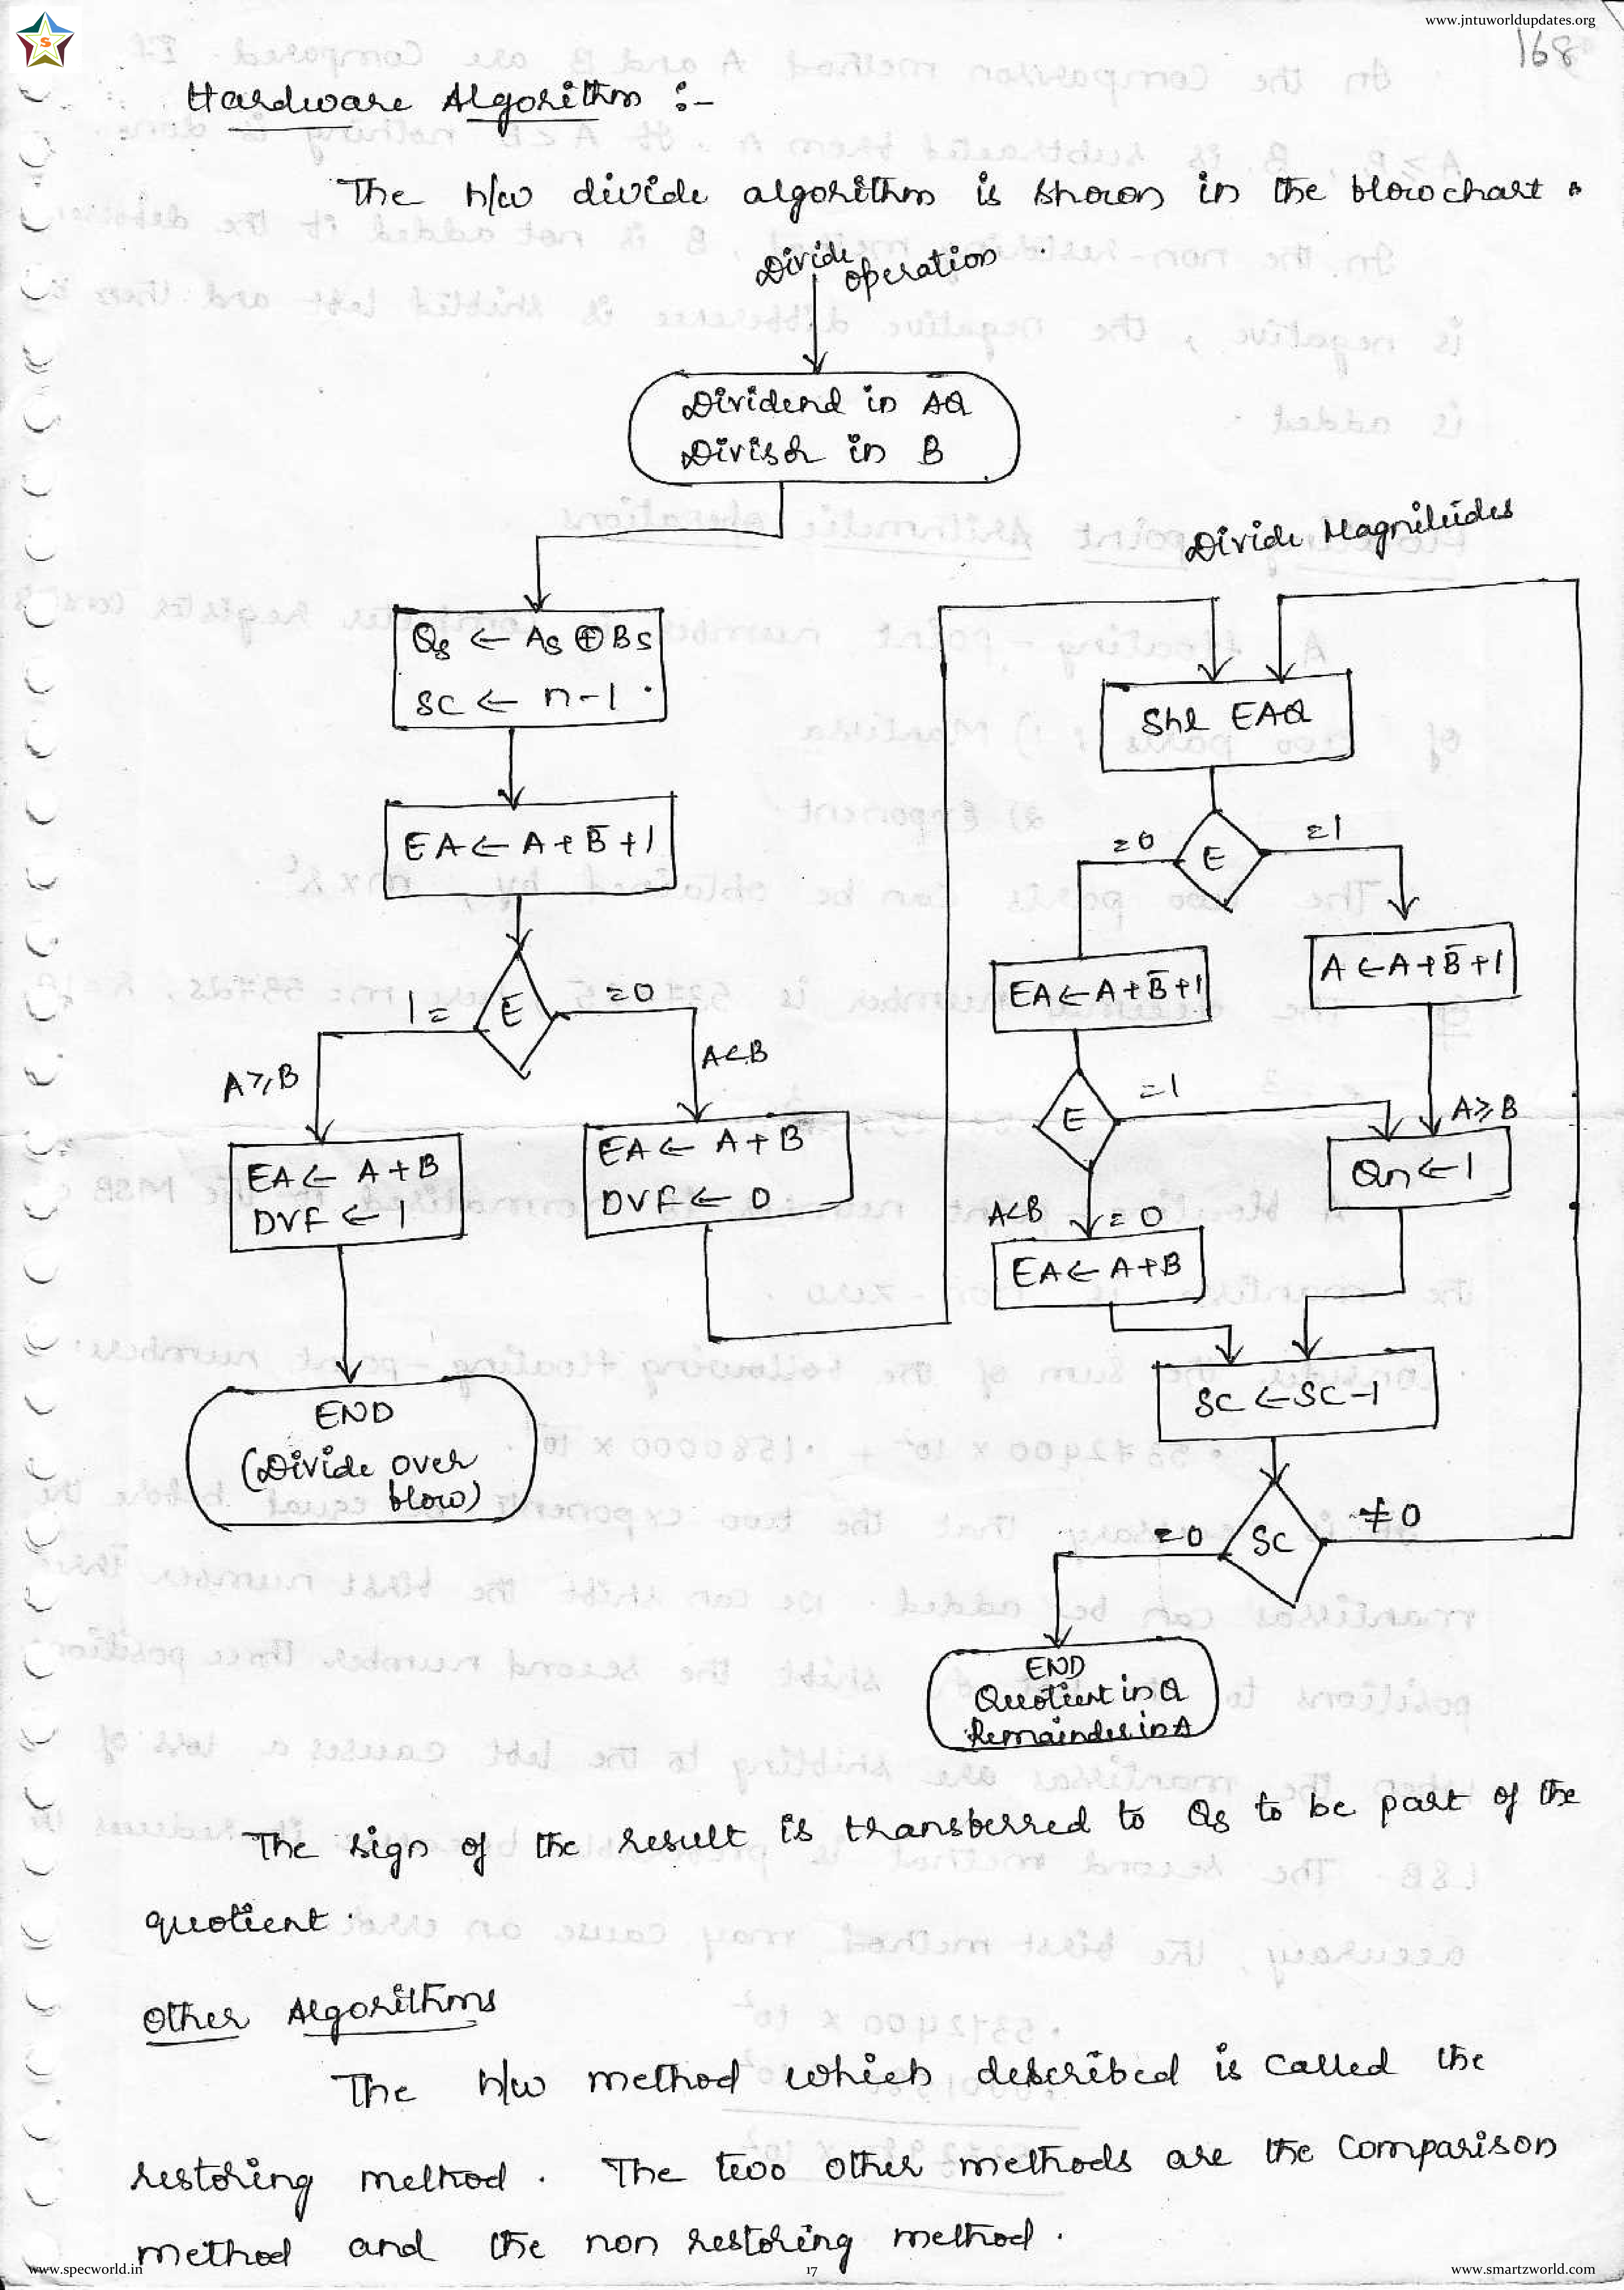 www.jntuworldupdates.org
168
S
Hardware Algorithm :-
The h/w divide algorithm is shown in the flowchart.
Divide operation
Dividend in AQ
Divisor in B
Divide Magnitudes
Qs ← As ⊕ Bs
SC ← n-1
Shl EAQ
EA ← A + B̅ + 1
E
=0
=1
EA ← A + B̅ + 1
A ← A + B̅ + 1
E
1 =
=0
A ≥ B
A < B
E
=1
A ≥ B
EA ← A + B
DVF ← 1
EA ← A + B
DVF ← 0
Qn ← 1
A < B
= 0
EA ← A + B
SC ← SC - 1
END
(Divide over
flow)
SC
=0
≠ 0
END
Quotient in Q
Remainder in A
The sign of the result is transferred to Qs to be part of the
quotient.
Other Algorithms
The h/w method which described is called the
restoring method. The two other methods are the comparison
method and the non restoring method.
www.specworld.in
17
www.smartzworld.com